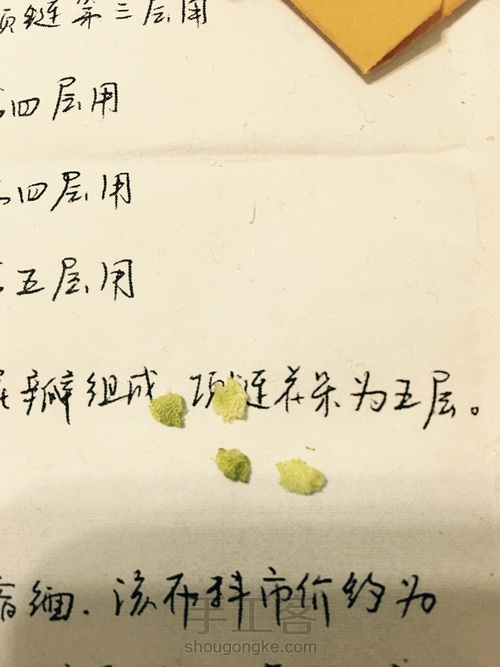 项链第三层用
四层用
四层用
五层用
瓣组成 项链花朵为五层。
缅. 该布料市价约为
手工客
shougongke.com